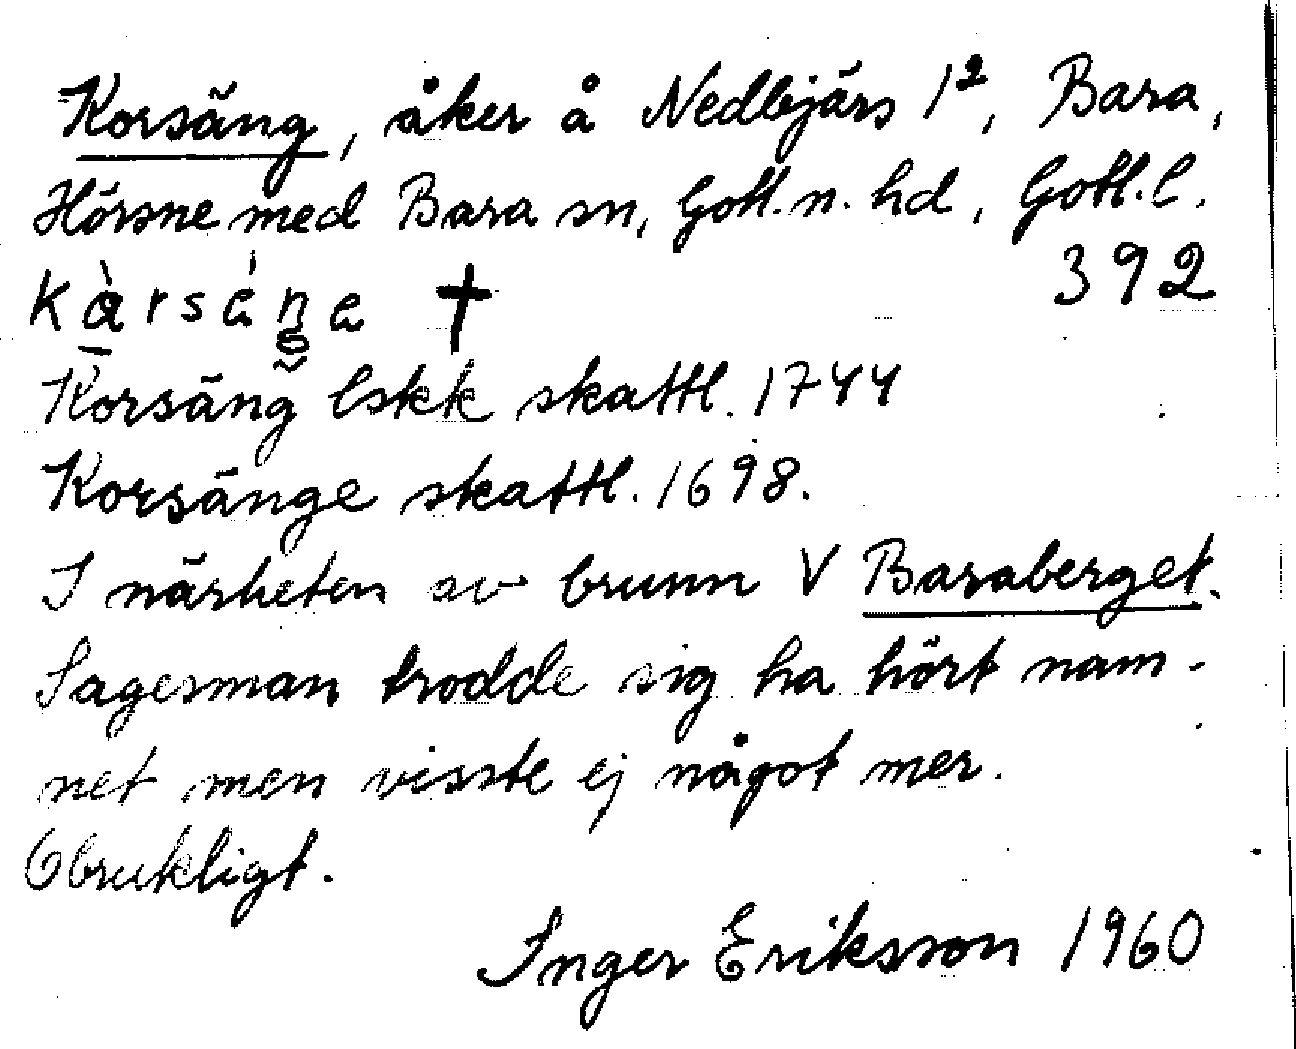 Korsäng, åker å Nedbjärs 1², Bara,
Hörsne med Bara sn, Gotl. n. hd, Gotl. l.
392
kàrsáŋa †
Korsäng lskk skattl. 1744
Korsänge skattl. 1698.
I närheten av brunn V Baraberget.
Sagesman trodde sig ha hört nam-
net men visste ej något mer.
Obrukligt.
Inger Eriksson 1960